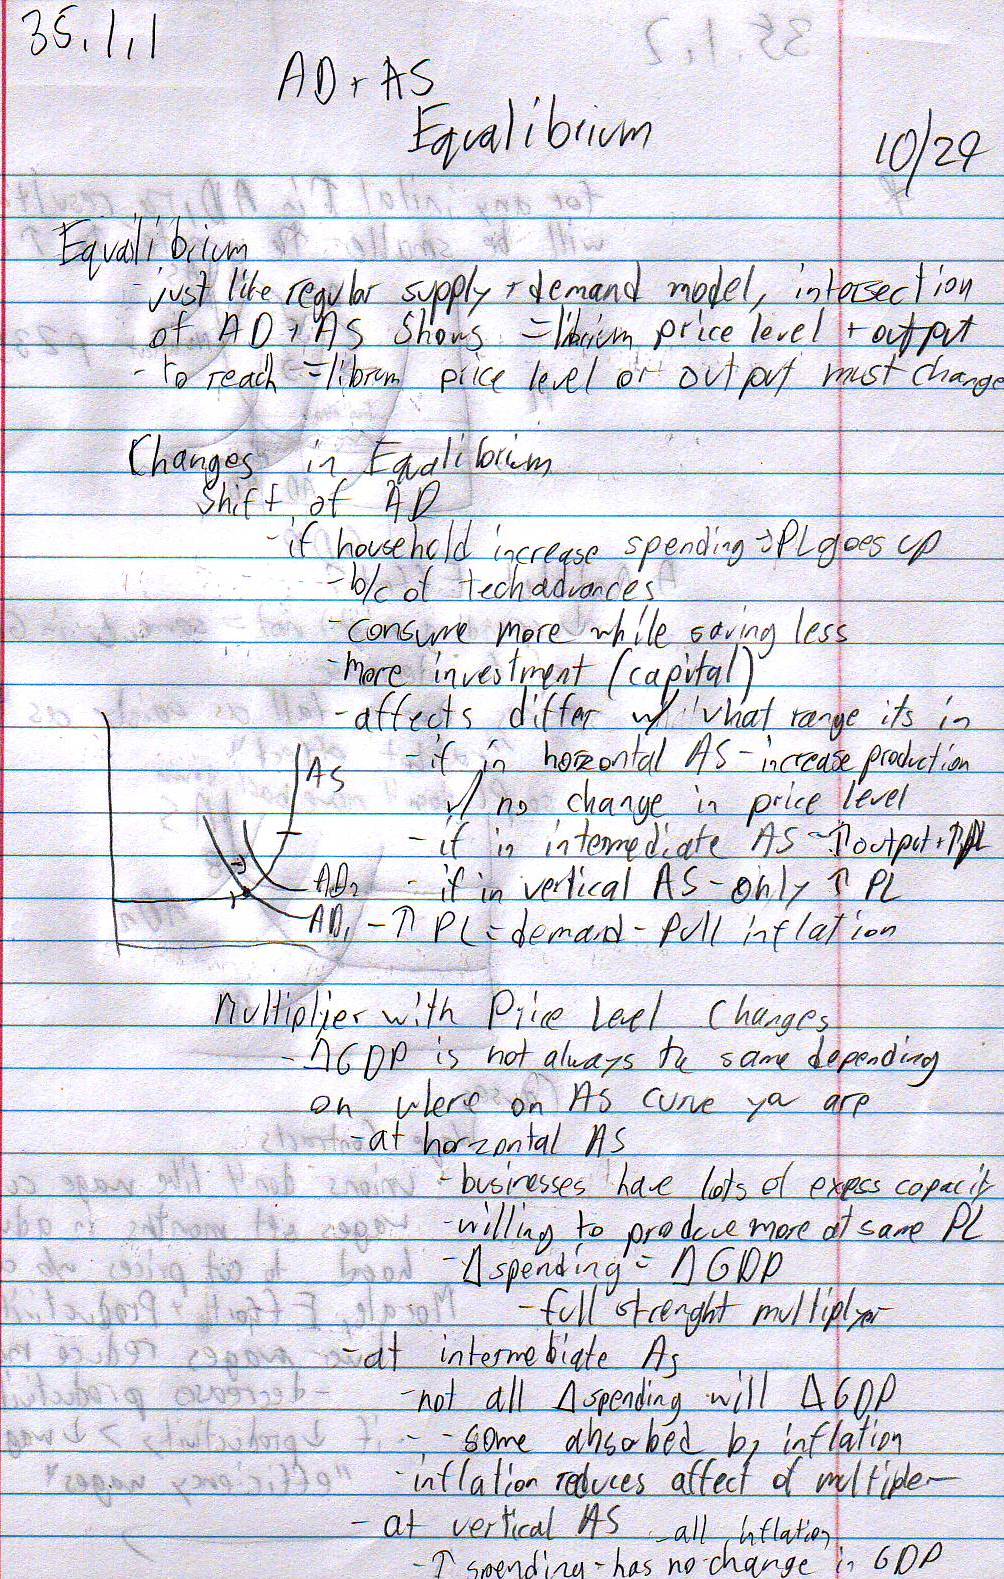 35.1.1
AD + AS
Equalibrium
10/29
Equalibrium
- just like regular supply + demand model, intersection
of AD + AS shows =librium price level + output
- to reach =librum price level or output must change
Changes in Equalibrium
Shift of AD
- if household increase spending → PL goes up
- b/c of tech advances
- consume more while saving less
- more investment (capital)
- affects differ w/ what range its in
- if in horizontal AS - increase production
w/ no change in price level
- if in intermediate AS - ↑ output + ↑ PL
- if in vertical AS - only ↑ PL
- ↑ PL = demand - pull inflation
AS
AD2
AD1
Multiplier with Price Level Changes
- ΔGDP is not always the same depending
on where on AS curve ya are
- at horzontal AS
- businesses have lots of excess capacity
- willing to produce more at same PL
- Δ spending = Δ GDP
- full strenght multiplyer
- at intermediate AS
- not all Δ spending will Δ GDP
- some absorbed by inflation
- inflation reduces affect of multiplier
- at vertical AS - all inflation
- ↑ spending - has no change in GDP